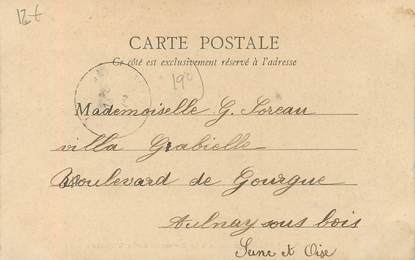 12t
CARTE POSTALE
Ce côté est exclusivement réservé à l'adresse
190
Mademoiselle G. Soreau
villa Grabielle
Boulevard de Gourgue
Aulnay sous bois
Seine et Oise